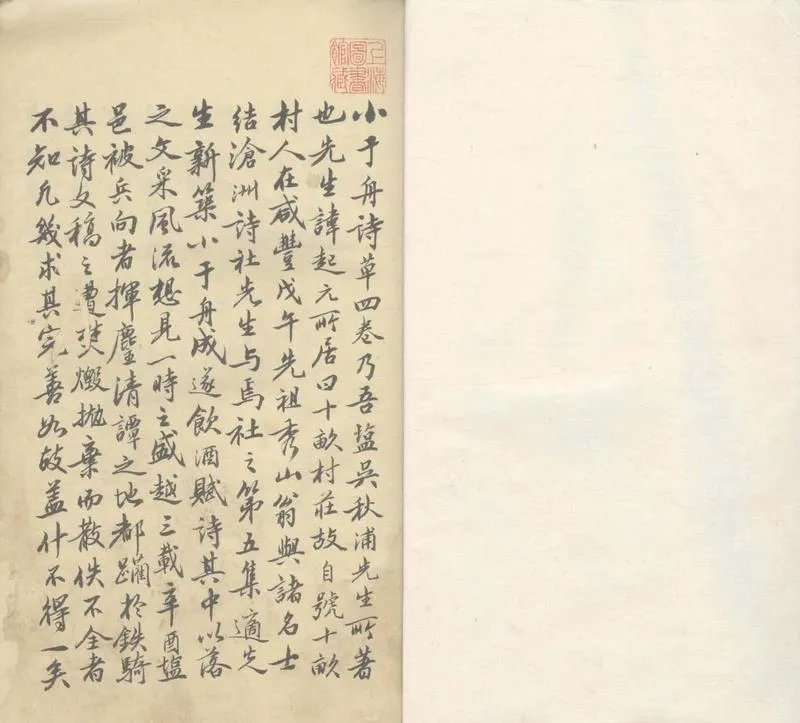 上海圖書館藏
小于舟詩草四卷乃吾塩吳秋浦先生所著
也先生諱起元所居曰十畝村莊故自號十畝
村人在咸豐戊午先祖秀山翁與諸名士
結滄洲詩社先生与焉社之第五集適先
生新築小于舟成遂飲酒賦詩其中以落
之文采風流想見一時之盛越三載辛酉塩
邑被兵向者揮麈清譚之地都躪於鉄騎
其詩文稿之遭焚燬拋棄而散佚不全者
不知凡幾求其完善如故蓋什不得一矣